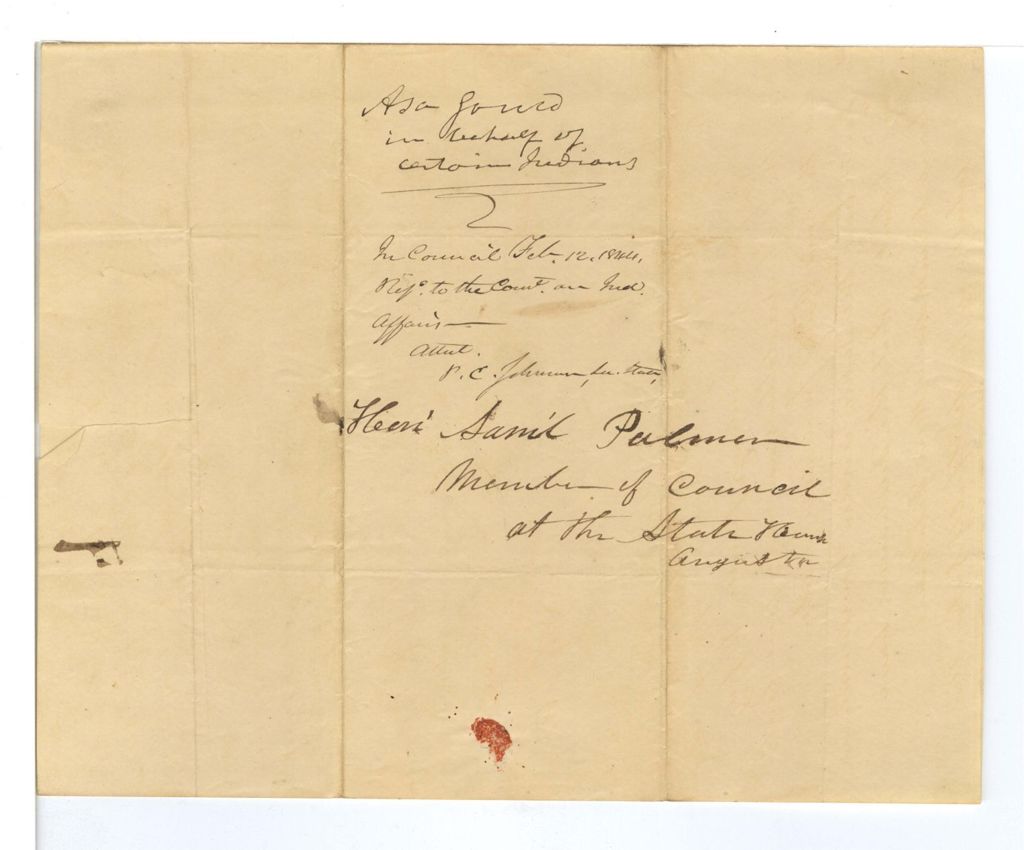 Asa Gould
in behalf of
certain Indians
In Council Feb. 12. 1844.
Ref.d to the Com.t on Ind.
Affairs—
Attest.
P. C. Johnson, Sec. State,
Hon'l Sam'l Palmer
Member of Council
at the State House
Augusta